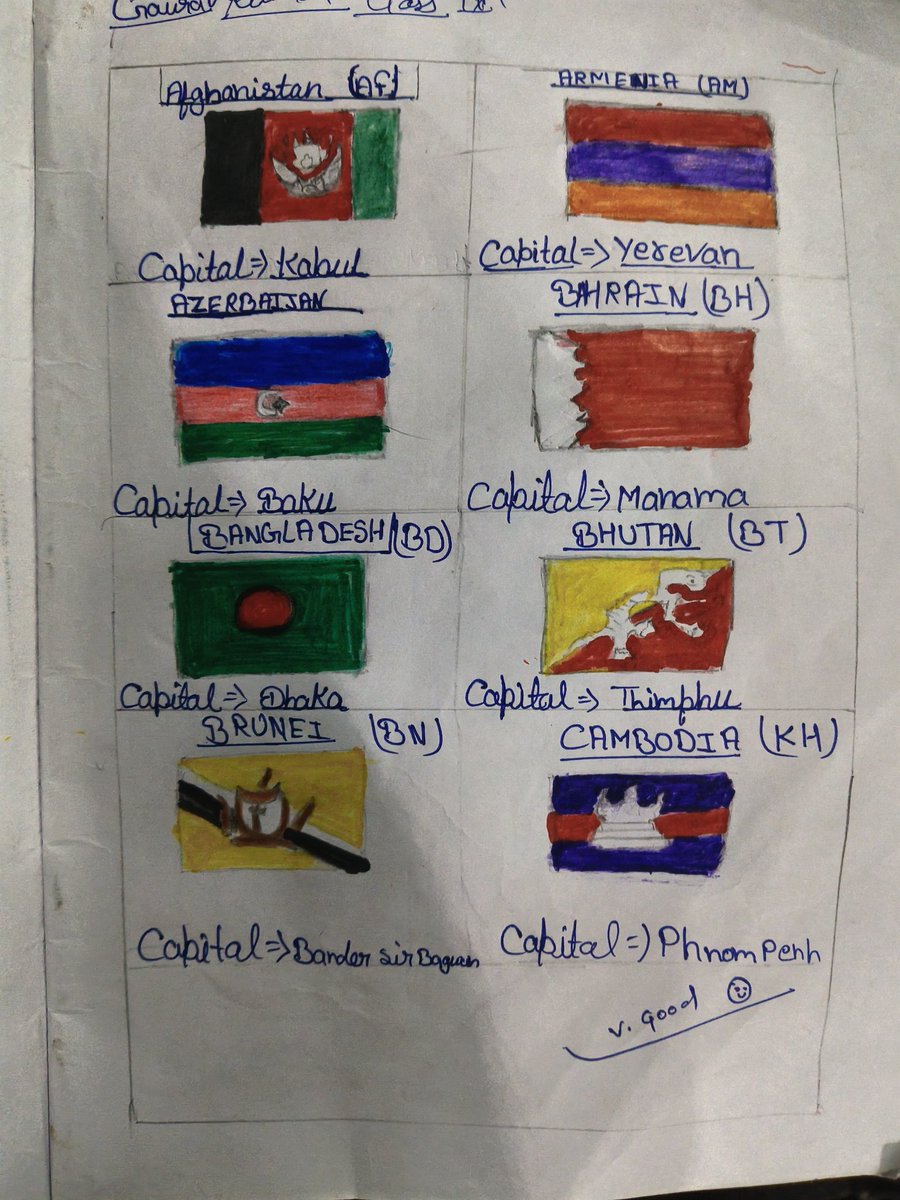 Class IX
Afghanistan (AF)
ARMENIA (AM)
Capital ⇒ Kabul
Capital ⇒ Yerevan
AZERBAIJAN
BAHRAIN (BH)
Capital ⇒ Baku
Capital ⇒ Manama
BANGLADESH (BD)
BHUTAN (BT)
Capital ⇒ Dhaka
Capital ⇒ Thimphu
BRUNEI (BN)
CAMBODIA (KH)
Capital ⇒ Bander sir Baguan
Capital ⇒ Phnom Penh
V. Good